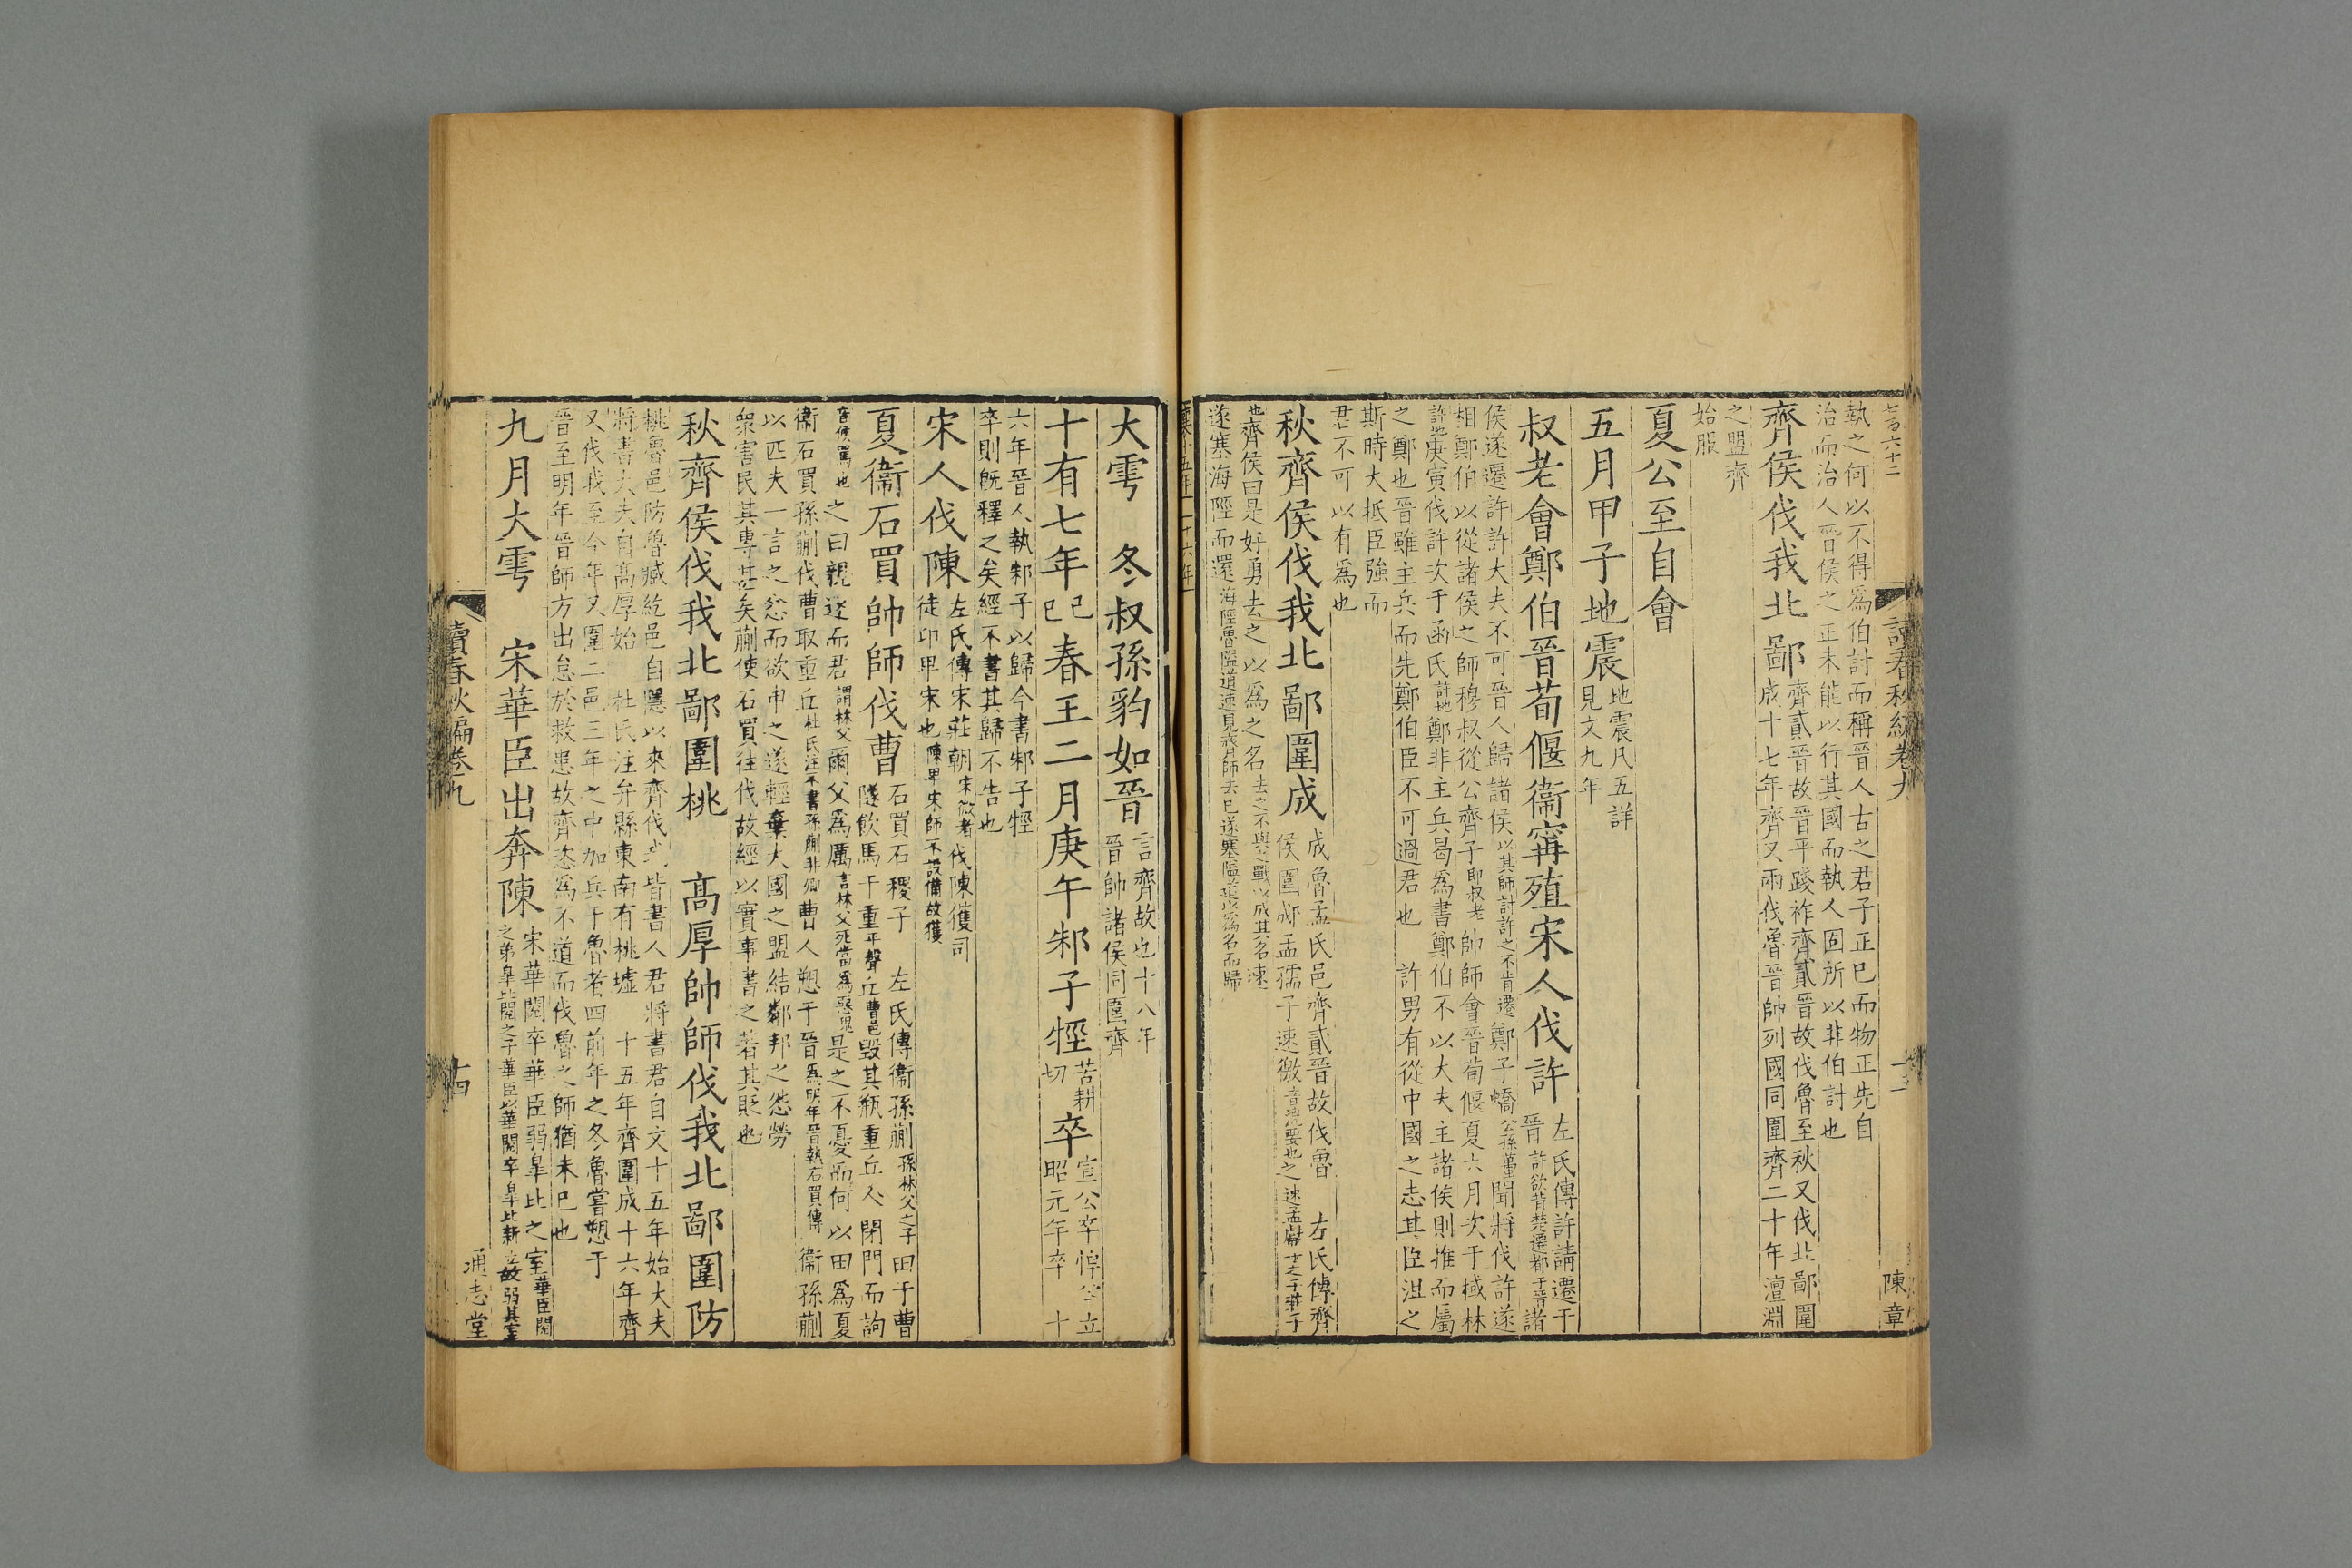 執之何以不得爲伯討而稱晉人古之君子正巳而物正先自
治而治人晉侯之正未能以行其國而執人固所以非伯討也
齊侯伐我北鄙齊貳晉故晉平踐祚齊貳晉故伐魯至秋又伐北鄙圍
成十七年齊又兩伐魯晉帥列國同圍齊二十年澶淵
之盟齊
始服
夏公至自會
五月甲子地震地震凡五詳
見文九年
叔老會鄭伯晉荀偃衞甯殖宋人伐許左氏傳許請遷于
晉許欲背楚遷都于晉諸
侯遂遷許許大夫不可晉人歸諸侯以其師討許之不肯遷鄭子蟜公孫蠆聞將伐許遂
相鄭伯以從諸侯之師穆叔從公齊子即叔老帥師會晉荀偃夏六月次于棫林
許地庚寅伐許次于函氏許地鄭非主兵曷爲書鄭伯不以大夫主諸侯則推而屬
之鄭也晉雖主兵而先鄭伯臣不可過君也 許男有從中國之志其臣沮之
斯時大抵臣強而
君不可以有爲也
秋齊侯伐我北鄙圍成成魯孟氏邑齊貳晉故伐魯 左氏傳齊
侯圍郕孟孺子速徼
也齊侯曰是好勇去之以爲之名去之不與之戰以成其名速
遂塞海陘而還海陘魯隘道
讀春秋編卷九
十三
陳章
大雩 冬叔孫豹如晉言齊故也十八年
晉帥諸侯同圍齊
十有七年己巳春王二月庚午邾子牼苦耕
切卒宣公卒悼公立
昭元年卒 十
六年晉人執邾子以歸今書邾子牼
卒則旣釋之矣經不書其歸不告也
宋人伐陳左氏傳宋莊朝宋微者伐陳獲司
徒卬卑宋也陳卑宋師不設備故獲
夏衞石買帥師伐曹石買石稷子 左氏傳衞孫蒯孫林父之子田于曹
隧飲馬于重平聲丘曹邑毀其瓶重丘人閉門而訽
音候罵也之曰親逐而君謂林父爾父爲厲言林父死當爲惡鬼是之不憂而何以田爲夏
衞石買孫蒯伐曹取重丘杜氏注不書孫蒯非卿曹人愬于晉爲明年晉執石買傳 衞孫蒯
以匹夫一言之忿而欲申之遂輕棄大國之盟結鄰邦之怨勞
衆害民其專甚矣蒯使石買往伐故經以實事書之著其貶也
秋齊侯伐我北鄙圍桃 高厚帥師伐我北鄙圍防
桃魯邑防魯臧紇邑自隱以來齊伐我皆書人君將書君自文十五年始大夫
將書大夫自高厚始 杜氏注弁縣東南有桃墟 十五年齊圍成十六年齊
又伐我至今年又圍二邑三年之中加兵于魯者四前年之冬魯嘗愬于
晉至明年晉師方出怠於救患故齊恣爲不道而伐魯之師猶未巳也
九月大雩 宋華臣出奔陳宋華閱卒華臣弱臯比之室華臣閱
之弟臯比閱之子華臣以華閱卒臯比新立故弱其室
讀春秋編卷九
十四
通志堂